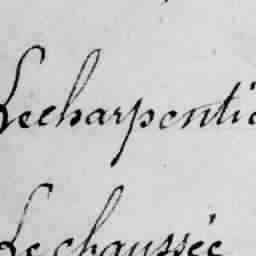 Lecharpentie
Lechaussée